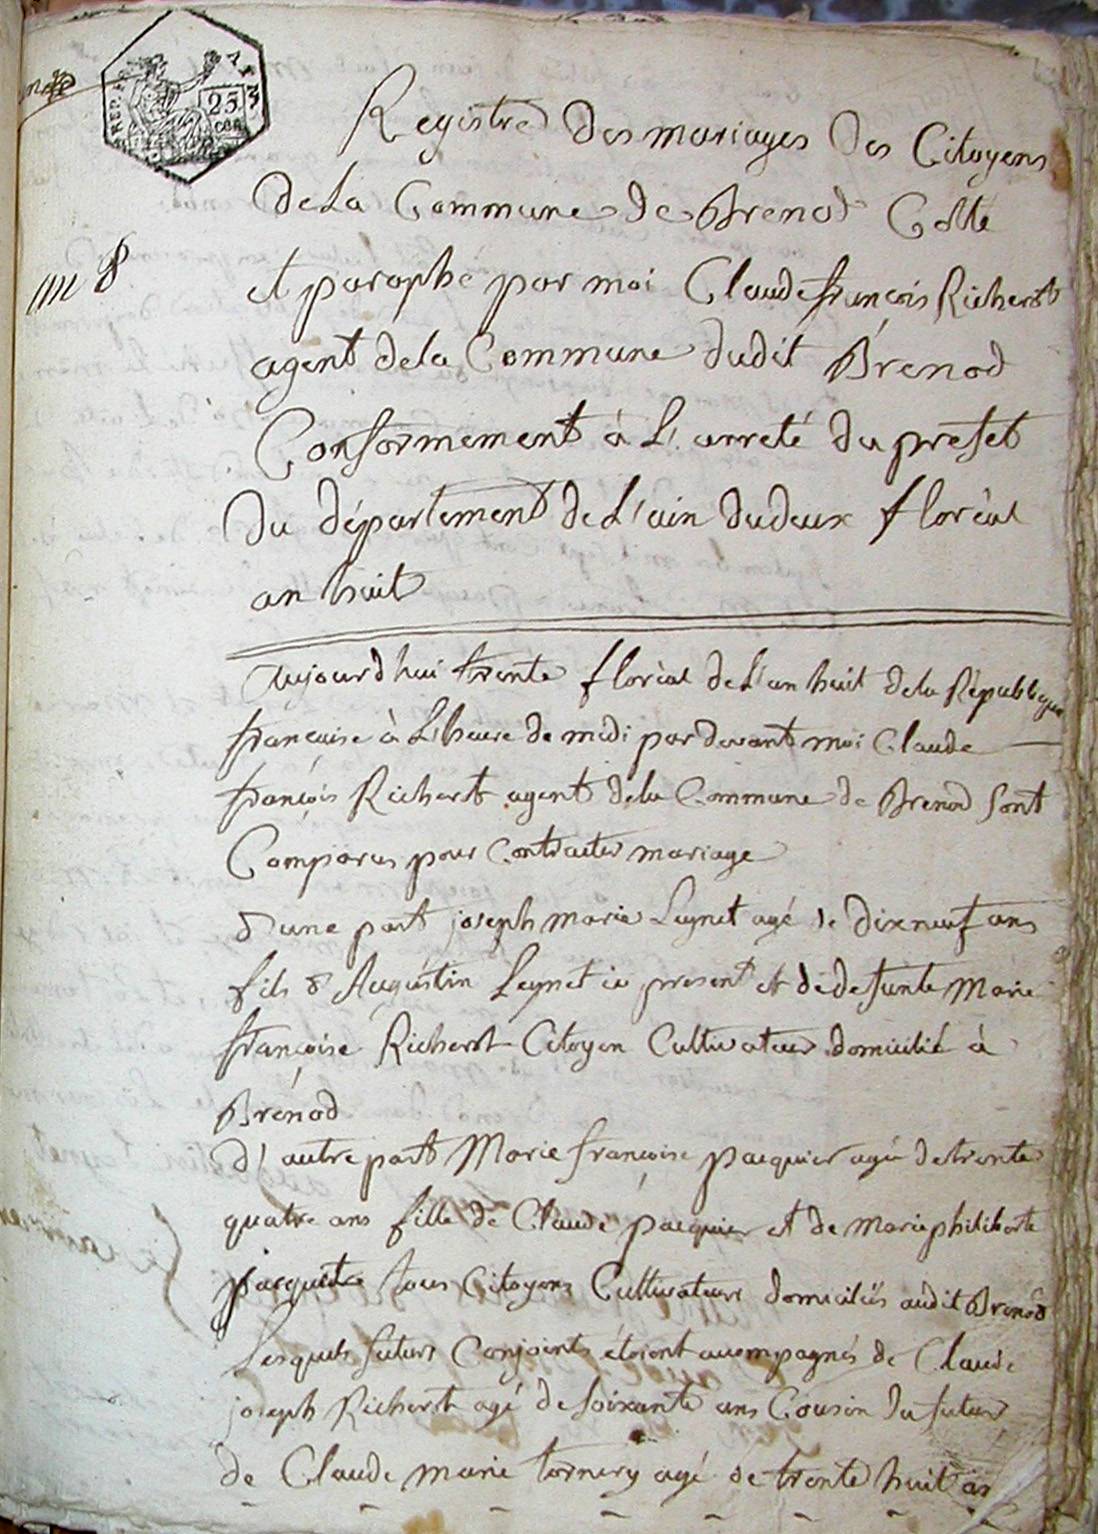 REP.
25
CEN
an 8
Registre Des mariages Des Citoyens
De La Commune de Brenod Cotté
et paraphé par moi Claude françois Richerot
agent de la Commune dudit Brénod
Conformement à L'arreté du prefet
Du département de L'ain du deux floréal
an huit
Aujourd'hui trente floréal de L'an huit de la République
française à L'heure de midi par devant moi Claude
françois Richerot agent de la Commune de Brenod sont
Comparus pour Contracter mariage
D'une part joseph marie Leynet agé de dixneuf ans
fils d'Augustin Leynet ici present et de defunte Marie
françoise Richerot Citoyen Cultivateur domicilié à
Brénod
d'autre part Marie françoise pacquier agée de trente
quatre ans fille de Claude pacquier et de marie philiberte
tous Citoyens Cultivateurs domiciliés audit Brenod
Lesquels futurs Conjoints étoient accompagnés de Claude
joseph Richerot agé de soixante ans Cousin du futur
de Claude marie agé de trente huit ans